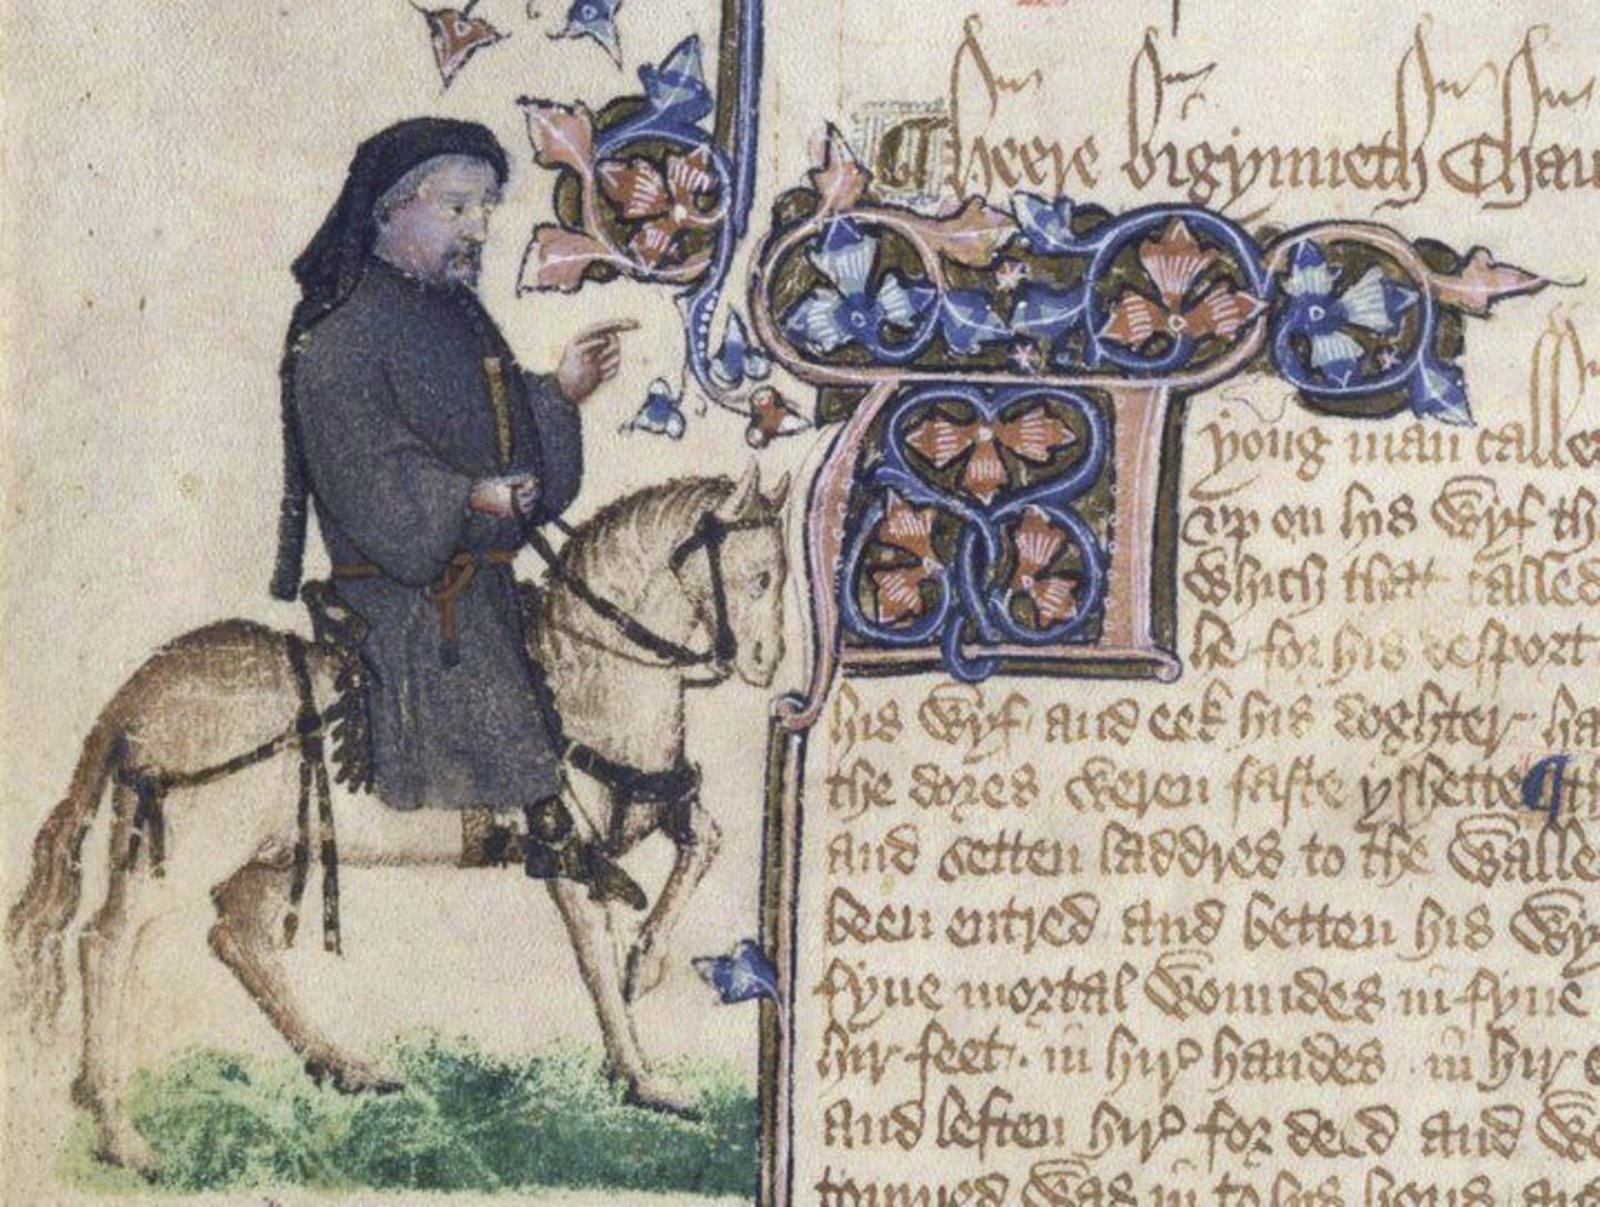 ¶ Heere bigynneth Chau
yong man calle
vp on his wyf th
which that called
he for his desport
his wyf and eek his doghter ha
the dores weren faste yshette ¶ th
and setten laddres to the walle
been entred and betten his wy
fyue mortal woundes in fyue
hir feet · in hir handes · in hir e
and leften hir for deed and we
tourned was in to his hous and